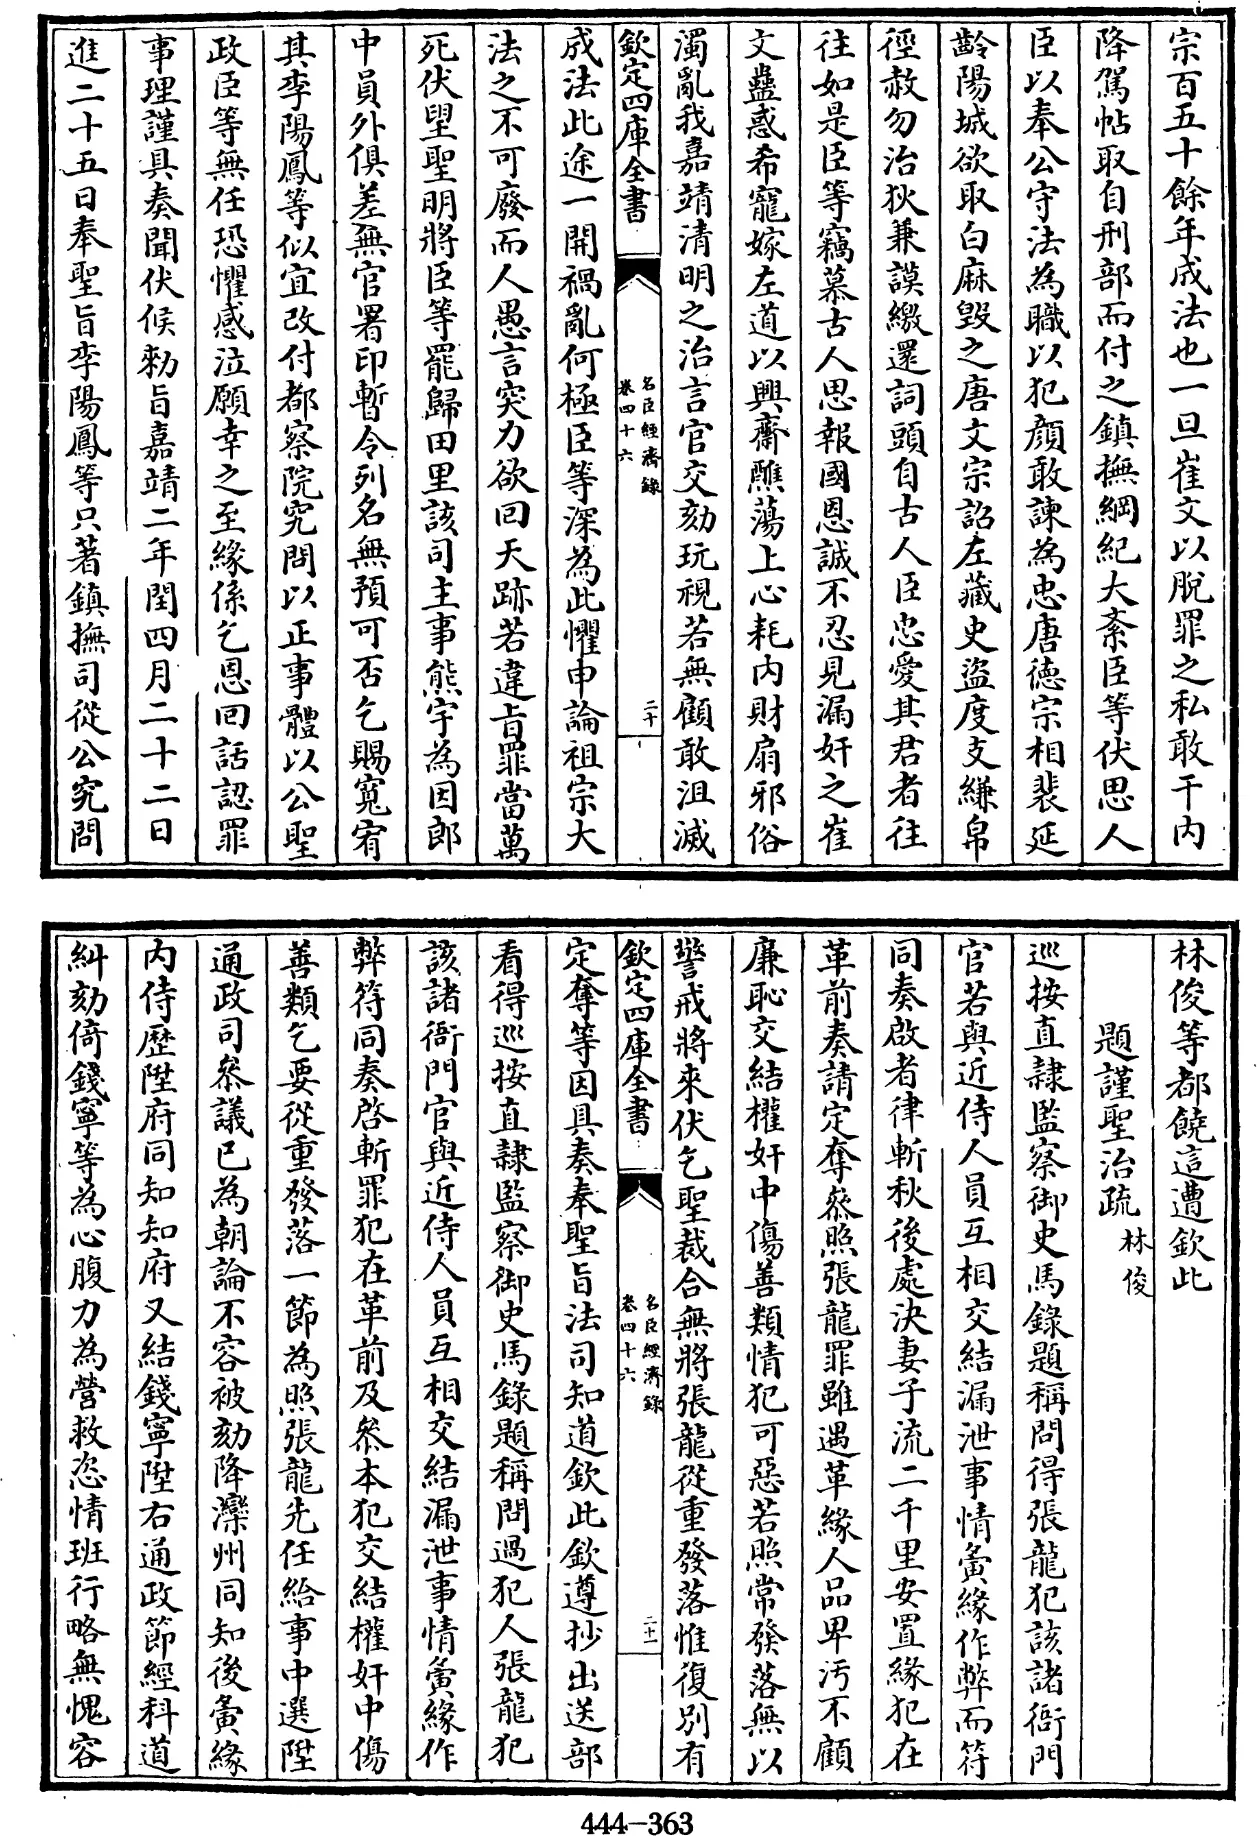 宗百五十餘年成法也一旦崔文以脫罪之私敢干内
降駕帖取自刑部而付之鎮撫綱紀大紊臣等伏思人
臣以奉公守法為職以犯顔敢諫為忠唐德宗相裴延
齡陽城欲取白麻毁之唐文宗詔左藏史盜度支縑帛
徑赦勿治狄兼謨繳還詞頭自古人臣忠愛其君者往
往如是臣等竊慕古人思報國恩誠不忍見漏奸之崔
文蠱惑希寵嫁左道以興齋醮蕩上心耗内財扇邪俗
濁亂我嘉靖清明之治言官交劾玩視若無顧敢沮滅
欽定四庫全書
名臣經濟錄
卷四十六
二十
成法此途一開禍亂何極臣等深為此懼申論祖宗大
法之不可廢而人愚言突力欲回天跡若違旨罪當萬
死伏望聖明將臣等罷歸田里該司主事熊宇為因郎
中員外俱差無官署印暫令列名無預可否乞賜寬宥
其李陽鳳等似宜改付都察院究問以正事體以公聖
政臣等無任恐懼感泣願幸之至緣係乞恩回話認罪
事理謹具奏聞伏候勑旨嘉靖二年閏四月二十二日
進二十五日奉聖旨李陽鳳等只著鎮撫司從公究問
林俊等都饒這遭欽此
題謹聖治疏 林俊
巡按直隸監察御史馬錄題稱問得張龍犯該諸衙門
官若與近侍人員互相交結漏泄事情夤緣作弊而符
同奏啟者律斬秋後處決妻子流二千里安置緣犯在
革前奏請定奪叅照張龍罪雖遇革緣人品卑污不顧
廉恥交結權奸中傷善類情犯可惡若照常發落無以
警戒將來伏乞聖裁合無將張龍從重發落惟復别有
欽定四庫全書
名臣經濟錄
卷四十六
二十一
定奪等因具奏奉聖旨法司知道欽此欽遵抄出送部
看得巡按直隸監察御史馬錄題稱問過犯人張龍犯
該諸衙門官與近侍人員互相交結漏泄事情夤緣作
弊符同奏啓斬罪犯在革前及叅本犯交結權奸中傷
善類乞要從重發落一節為照張龍先任給事中選陞
通政司叅議已為朝論不容被劾降灤州同知後夤緣
内侍歷陞府同知知府又結錢寧陞右通政節經科道
糾劾倚錢寧等為心腹力為營救恣情班行略無愧容
444-363